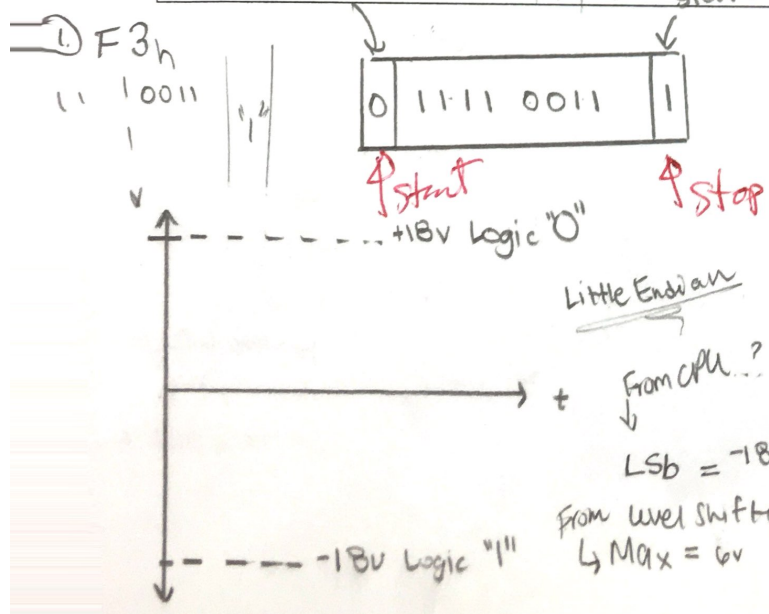 1. F3h
11 1 0011
1
"1"
0 1111 0011 1
Start
Stop
V
+18v Logic "0"
Little Endian
From CPU..?
t
LSb = -18
From level shift
↳ Max = 6v
-18v Logic "1"